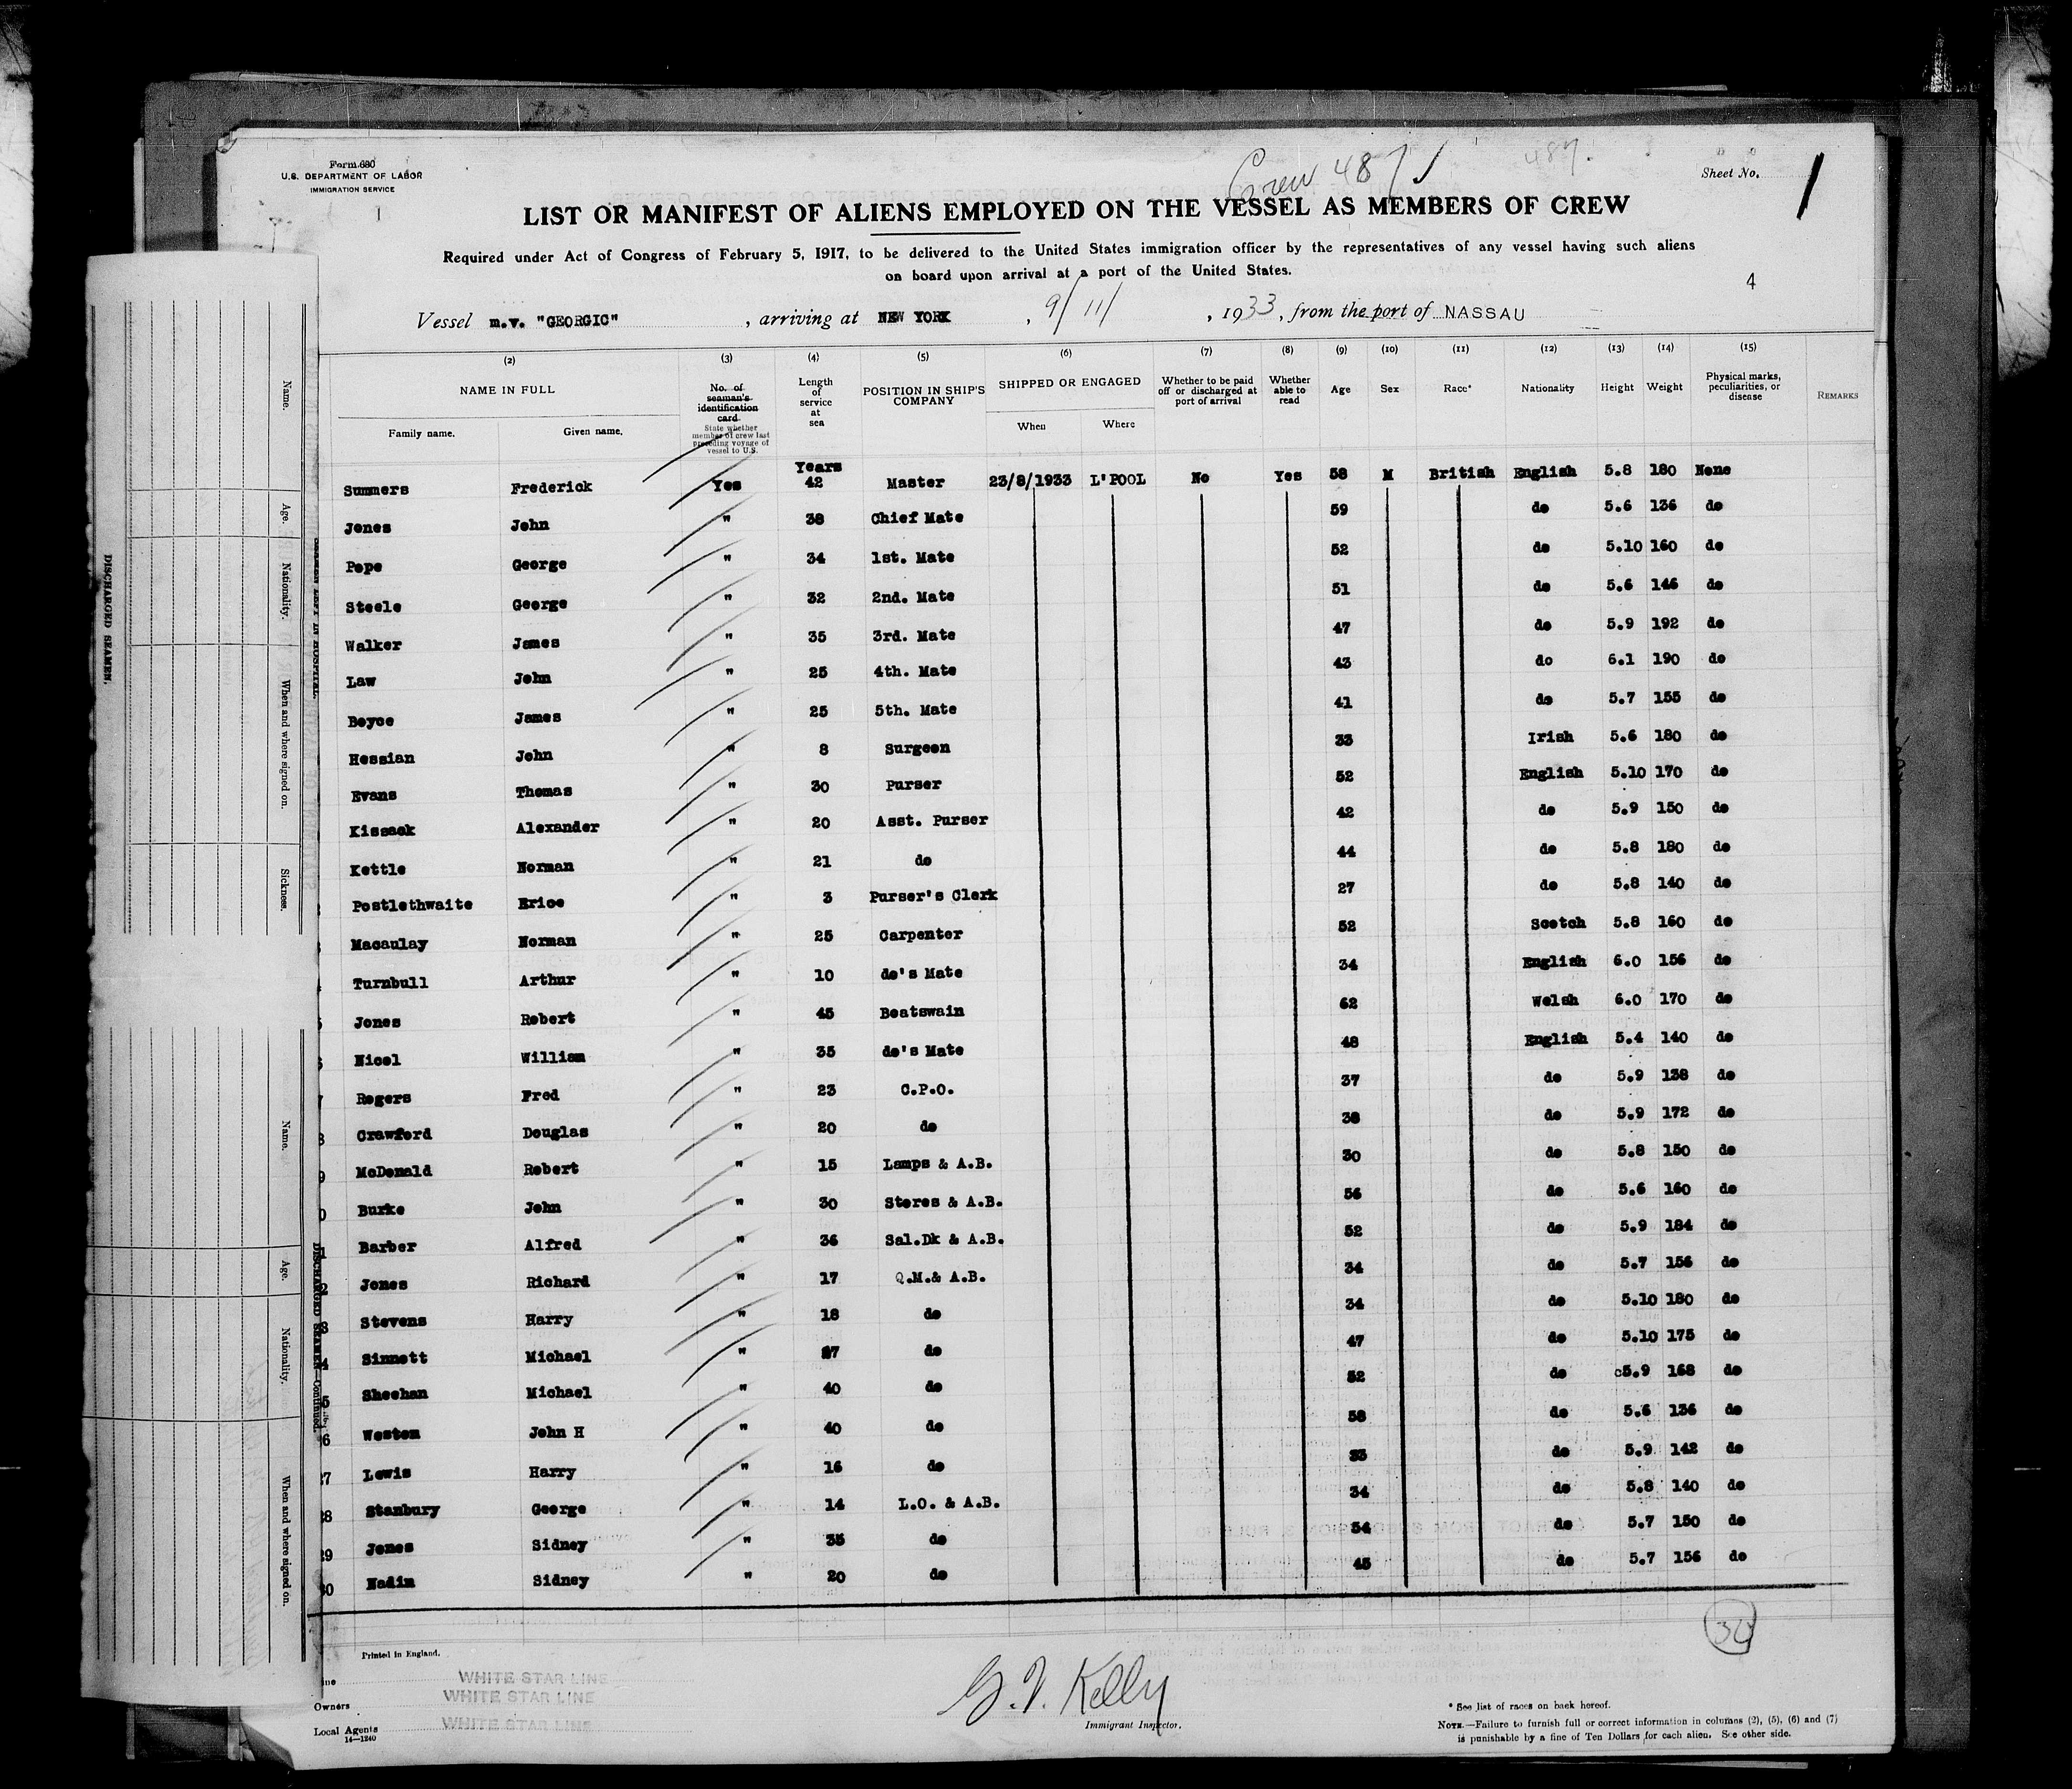 Form 680
U.S. DEPARTMENT OF LABOR
IMMIGRATION SERVICE
Crew 487
487.
Sheet No. 1
LIST OR MANIFEST OF ALIENS EMPLOYED ON THE VESSEL AS MEMBERS OF CREW
Required under Act of Congress of February 5, 1917, to be delivered to the United States immigration officer by the representatives of any vessel having such aliens
on board upon arrival at a port of the United States.
4
Vessel m.v. "GEORGIC", arriving at NEW YORK, 9/11/, 1933, from the port of NASSAU
(2) (3) (4) (5) (6) (7) (8) (9) (10) (11) (12) (13) (14) (15)
NAME IN FULL
Family name. Given name.
No. of seaman's identification card
State whether member of crew last preceding voyage of vessel to U.S.
Length of service at sea
POSITION IN SHIP'S COMPANY
SHIPPED OR ENGAGED
When Where
Whether to be paid off or discharged at port of arrival
Whether able to read
Age
Sex
Race*
Nationality
Height
Weight
Physical marks, peculiarities, or disease
REMARKS
Years
Summers Frederick Yes 42 Master 23/8/1933 L'POOL No Yes 58 M British English 5.8 180 None
Jones John " 38 Chief Mate 59 do 5.6 136 do
Pope George " 34 1st. Mate 52 do 5.10 160 do
Steele George " 32 2nd. Mate 51 do 5.6 146 do
Walker James " 35 3rd. Mate 47 do 5.9 192 do
Law John " 25 4th. Mate 43 do 6.1 190 do
Boyce James " 25 5th. Mate 41 do 5.7 155 do
Hessian John " 8 Surgeon 33 Irish 5.6 180 do
Evans Thomas " 30 Purser 52 English 5.10 170 do
Kissack Alexander " 20 Asst. Purser 42 do 5.9 150 do
Kettle Norman " 21 do 44 do 5.8 180 do
Postlethwaite Erice " 3 Purser's Clerk 27 do 5.8 140 do
Macaulay Norman " 25 Carpenter 52 Scotch 5.8 160 do
Turnbull Arthur " 10 do's Mate 34 English 6.0 156 do
Jones Robert " 45 Boatswain 62 Welsh 6.0 170 do
Nicol William " 35 do's Mate 48 English 5.4 140 do
Rogers Fred " 23 C.P.O. 37 do 5.9 138 do
Crawford Douglas " 20 do 38 do 5.9 172 do
McDonald Robert " 15 Lamps & A.B. 30 do 5.8 150 do
Burke John " 30 Stores & A.B. 56 do 5.6 160 do
Barber Alfred " 36 Sal.Dk & A.B. 52 do 5.9 184 do
Jones Richard " 17 Q.M.& A.B. 34 do 5.7 156 do
Stevens Harry " 18 do 34 do 5.10 180 do
Sinnott Michael " 27 do 47 do 5.10 175 do
Sheehan Michael " 40 do 52 do 5.9 168 do
Weston John H " 40 do 58 do 5.6 136 do
27 Lewis Harry " 16 do 33 do 5.9 142 do
28 Stanbury George " 14 L.O. & A.B. 34 do 5.8 140 do
29 Jones Sidney " 35 do 54 do 5.7 150 do
30 Nadin Sidney " 20 do 45 do 5.7 156 do
30
Printed in England.
WHITE STAR LINE
Owners WHITE STAR LINE
Local Agents WHITE STAR LINE
14—1240
G. J. Kelly
Immigrant Inspector.
* See list of races on back hereof.
NOTE.—Failure to furnish full or correct information in columns (2), (5), (6) and (7)
is punishable by a fine of Ten Dollars for each alien. See other side.
DISCHARGED SEAMEN.
Name.
Age.
Nationality.
When and where signed on.
Sickness.
Name.
Age.
Nationality.
When and where signed on.
DISCHARGED SEAMEN—Continued.